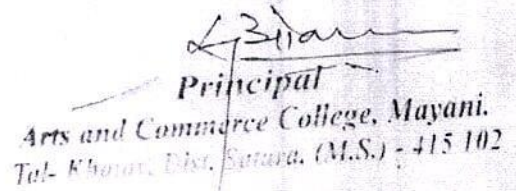 Principal
Arts and Commerce College, Mayani.
Tal- Khatav, Dist. Satara. (M.S.) - 415 102